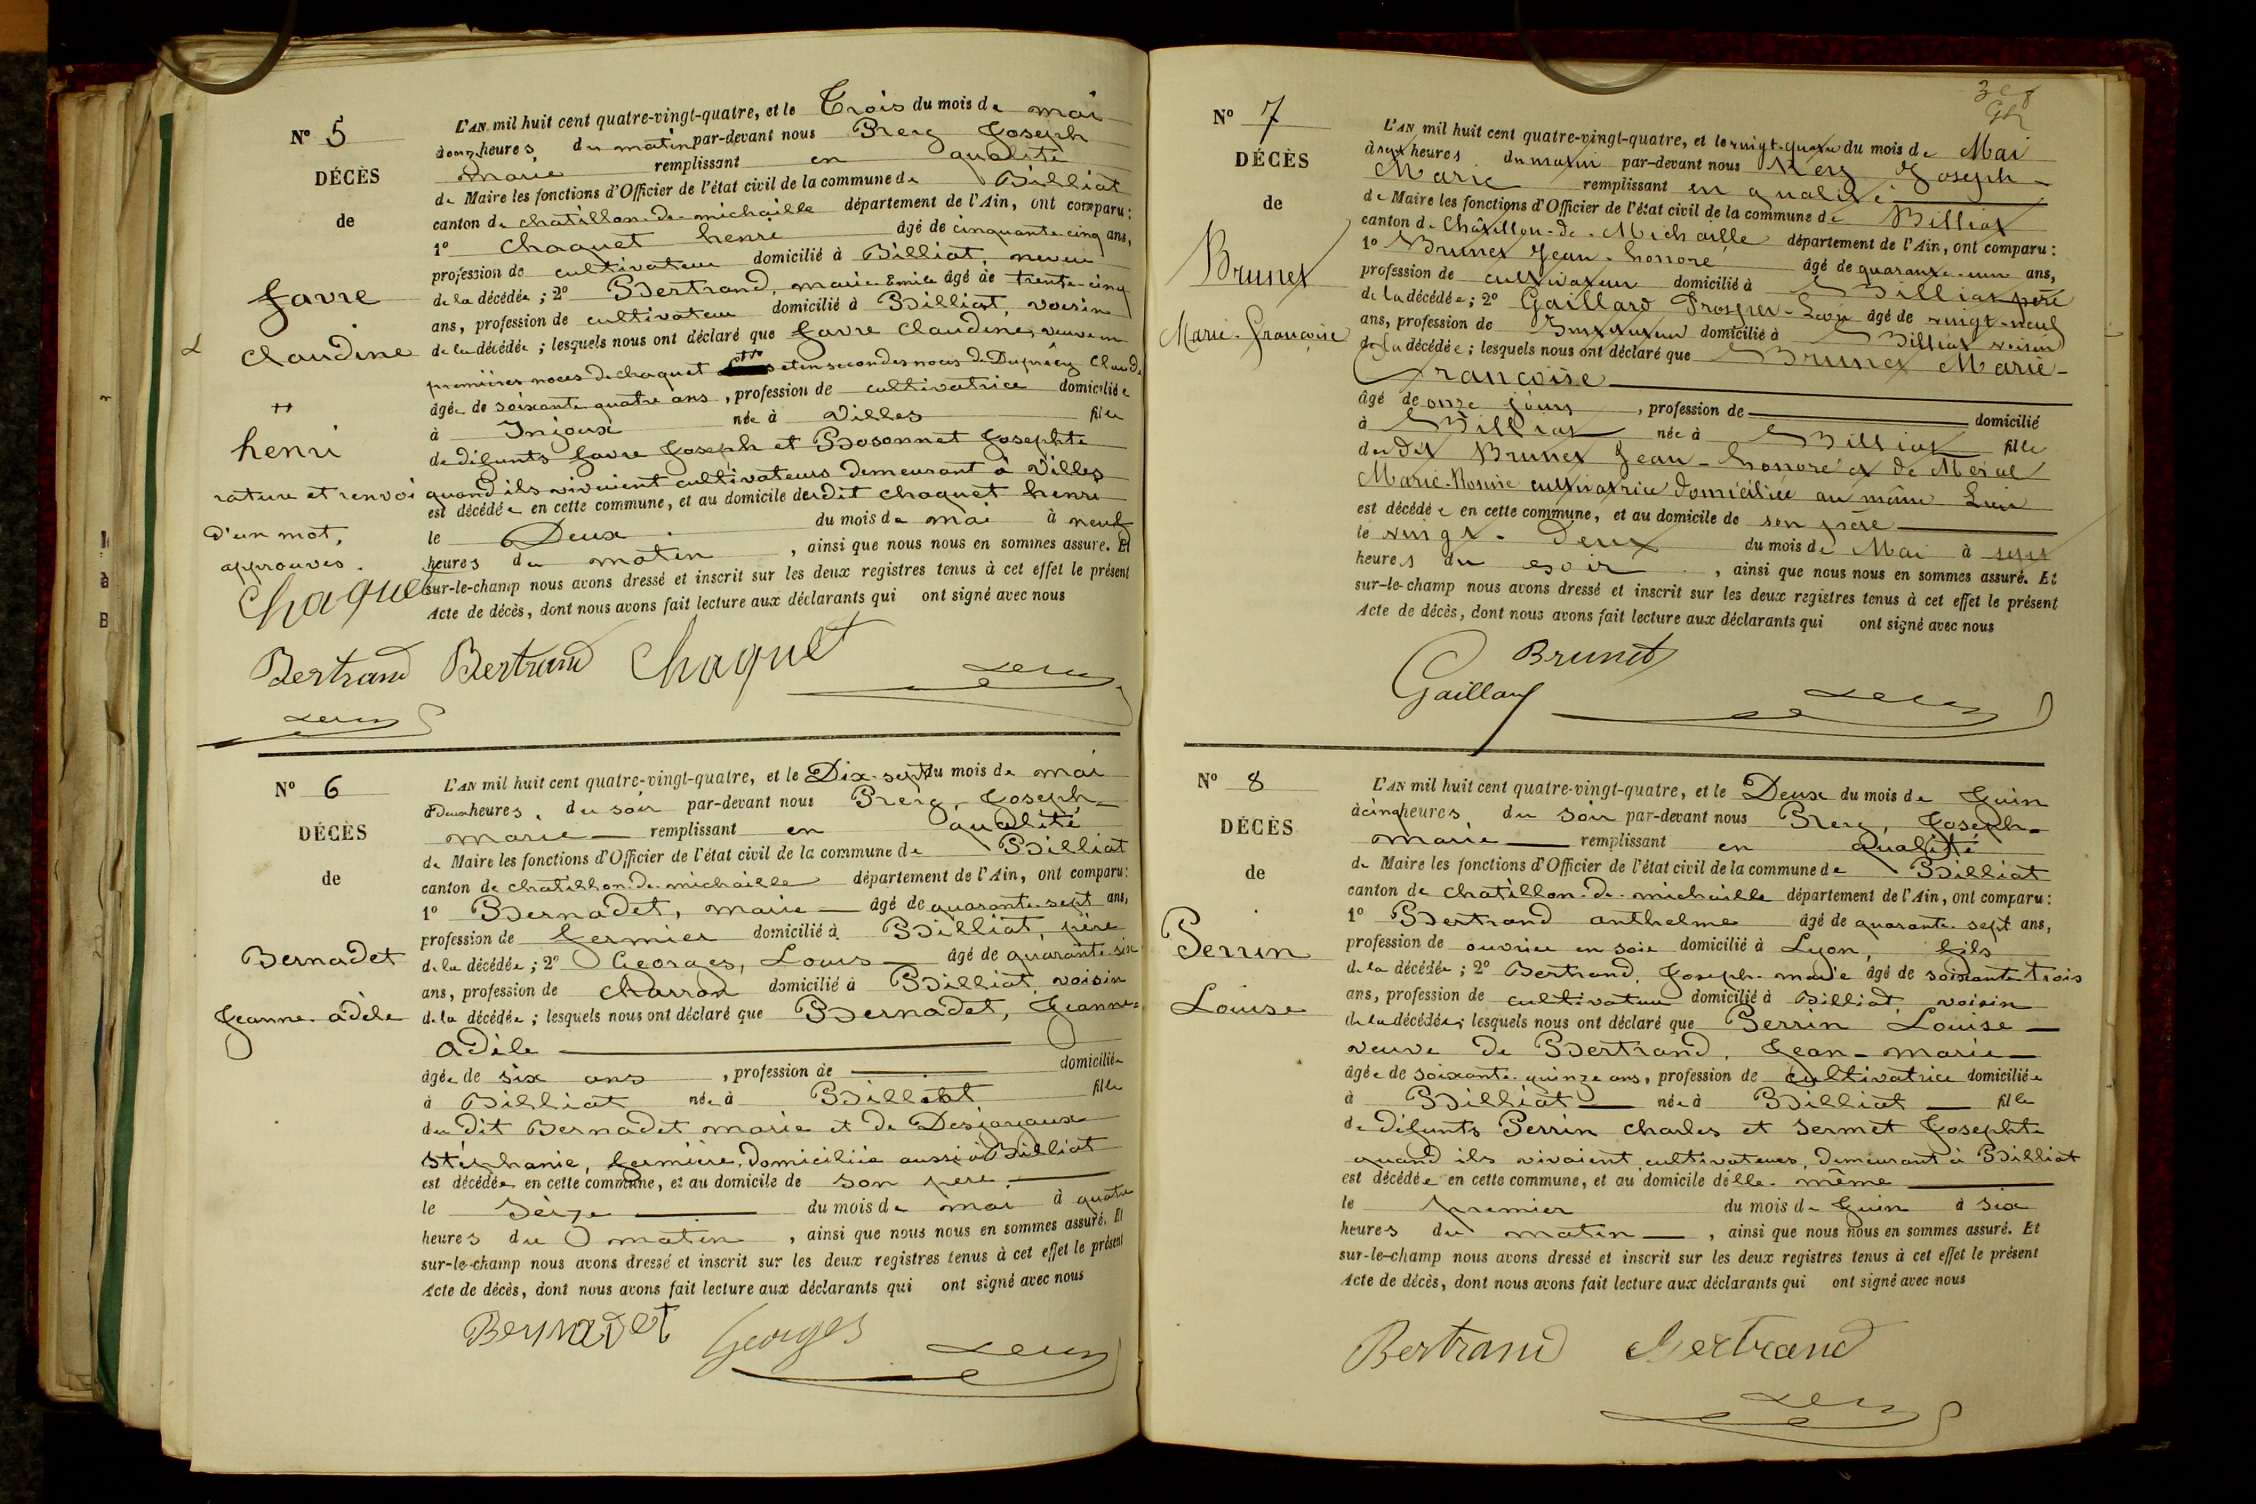 Nº 5
DÉCÈS
de
favre
claudine
++
henri
rature et renvoi
d'un mot,
approuvés.
Chaquet
L'AN mil huit cent quatre-vingt-quatre, et le Trois du mois de mai
à onze heures du matin par-devant nous Prerg Joseph
marie remplissant en qualité
de Maire les fonctions d'Officier de l'état civil de la commune de Billiat
canton de chatillon-de-michaille département de l'Ain, ont comparu:
1º chaquet henri âgé de cinquante-cinq ans,
profession de cultivateur domicilié à Billiat, neveu
de la décédée; 2º Bertrand, marie-Emile âgé de trente-cinq
ans, profession de cultivateur domicilié à Billiat, voisin
de la décédée; lesquels nous ont déclaré que favre claudine, veuve en
premières noces de chaquet ++ et en secondes noces de Dupréey Claude
âgée de soixante quatre ans, profession de cultivatrice domiciliée
à Injoux née à Villes fille
de défunts favre Joseph et Bosonnet Josephte
quand ils vivaient cultivateurs demeurant à Villes
est décédée en cette commune, et au domicile dudit chaquet henri
le Deux du mois de mai à neuf
heures du matin, ainsi que nous nous en sommes assuré. Et
sur-le-champ nous avons dressé et inscrit sur les deux registres tenus à cet effet le présent
Acte de décès, dont nous avons fait lecture aux déclarants qui ont signé avec nous
Bertrand Bertrand Chaquet
Nº 6
DÉCÈS
de
Bernadet
Jeanne-adèle
L'AN mil huit cent quatre-vingt-quatre, et le Dix-sept du mois de mai
à Deux heures du soir par-devant nous Prerg, Joseph-
marie remplissant en qualité
de Maire les fonctions d'Officier de l'état civil de la commune de Billiat
canton de chatillon-de-michaille département de l'Ain, ont comparu:
1º Bernadet, marie âgé de quarante-sept ans,
profession de fermier domicilié à Billiat, père
de la décédée; 2º Georges, Louis âgé de quarante-six
ans, profession de charron domicilié à Billiat, voisin
de la décédée; lesquels nous ont déclaré que Bernadet, Jeanne-
adèle
âgée de six ans, profession de domiciliée
à Billiat née à Billiat fille
du dit Bernadet marie et de Desjoyaux
Stéphanie, fermière, domiciliée aussi à Billiat
est décédée en cette commune, et au domicile de son père.
le Seize du mois de mai à quatre
heures du matin, ainsi que nous nous en sommes assuré. Et
sur-le-champ nous avons dressé et inscrit sur les deux registres tenus à cet effet le présent
Acte de décès, dont nous avons fait lecture aux déclarants qui ont signé avec nous
Bernadet Georges
Nº 7
DÉCÈS
de
Brunet
Marie-françoise
L'AN mil huit cent quatre-vingt-quatre, et le vingt-quatre du mois de Mai
à sept heures du matin par-devant nous Prerg Joseph-
Marie remplissant en qualité
de Maire les fonctions d'Officier de l'état civil de la commune de Billiat
canton de Châtillon-de-Michaille département de l'Ain, ont comparu:
1º Brunet Jean-honoré âgé de quarante-un ans,
profession de cultivateur domicilié à Billiat père
de la décédée; 2º Gaillard Prosper-Léon âgé de vingt-neuf
ans, profession de Instituteur domicilié à Billiat voisin
de la décédée; lesquels nous ont déclaré que Brunet Marie-
françoise
âgé de onze jours, profession de domicilié
à Billiat née à Billiat fille
du dit Brunet Jean-honoré et de Meral
Marie-Rosine cultivatrice domiciliée au même Lieu
est décédée en cette commune, et au domicile de son père
le vingt-deux du mois de Mai à sept
heures du soir, ainsi que nous nous en sommes assuré. Et
sur-le-champ nous avons dressé et inscrit sur les deux registres tenus à cet effet le présent
Acte de décès, dont nous avons fait lecture aux déclarants qui ont signé avec nous
Brunet
Gaillard
Nº 8
DÉCÈS
de
Perrin
Louise
L'AN mil huit cent quatre-vingt-quatre, et le Deux du mois de Juin
à cinq heures du soir par-devant nous Prerg, Joseph-
marie remplissant en qualité
de Maire les fonctions d'Officier de l'état civil de la commune de Billiat
canton de chatillon-de-michaille département de l'Ain, ont comparu:
1º Bertrand anthelme âgé de quarante-sept ans,
profession de ouvrier en soie domicilié à Lyon, fils
de la décédée; 2º Bertrand, Joseph-marie âgé de soixante trois
ans, profession de cultivateur domicilié à Billiat, voisin
de la décédée; lesquels nous ont déclaré que Perrin Louise
veuve de Bertrand, Jean-marie
âgée de soixante-quinze ans, profession de cultivatrice domiciliée
à Billiat née à Billiat fille
de défunts Perrin charles et Sermet Josephte
quand ils vivaient cultivateurs, demeurant à Billiat
est décédée en cette commune, et au domicile d'elle-même
le premier du mois de Juin à six
heures du matin, ainsi que nous nous en sommes assuré. Et
sur-le-champ nous avons dressé et inscrit sur les deux registres tenus à cet effet le présent
Acte de décès, dont nous avons fait lecture aux déclarants qui ont signé avec nous
Bertrand Bertrand